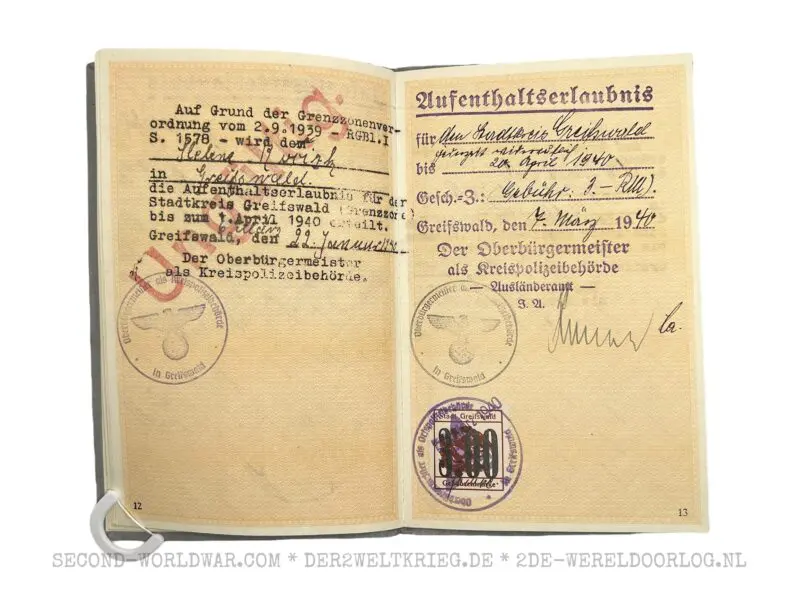 Auf Grund der Grenzzonenver-
ordnung vom 2.9.1939 RGBl.I
S. 1578 - wird dem
Helene
in Greifswald.
die Aufenthaltserlaubnis für der
Stadtkreis Greifswald (Grenzzone)
bis zum 1.April 1940 erteilt.
Greifswald, den 22. Januar
Der Oberbürgermeister
als Kreispolizeibehörde.
Ungültig.
Oberbürgermeister als Kreispolizeibehörde
in Greifswald
12
Aufenthaltserlaubnis
für den Stadtkreis Greifswald
bis 20. April 1940
Gesch.-Z.: Gebühr: 3.- RM).
Greifswald, den 7. März 1940
Der Oberbürgermeister
als Kreispolizeibehörde
— Ausländeramt —
I. A.
Oberbürgermeister als Kreispolizeibehörde
in Greifswald
Oberbürgermeister als Ortspolizeibehörde
in Greifswald
Stadt Greifswald
3.00
13
SECOND-WORLDWAR.COM * DER2WELTKRIEG.DE * 2DE-WERELDOORLOG.NL